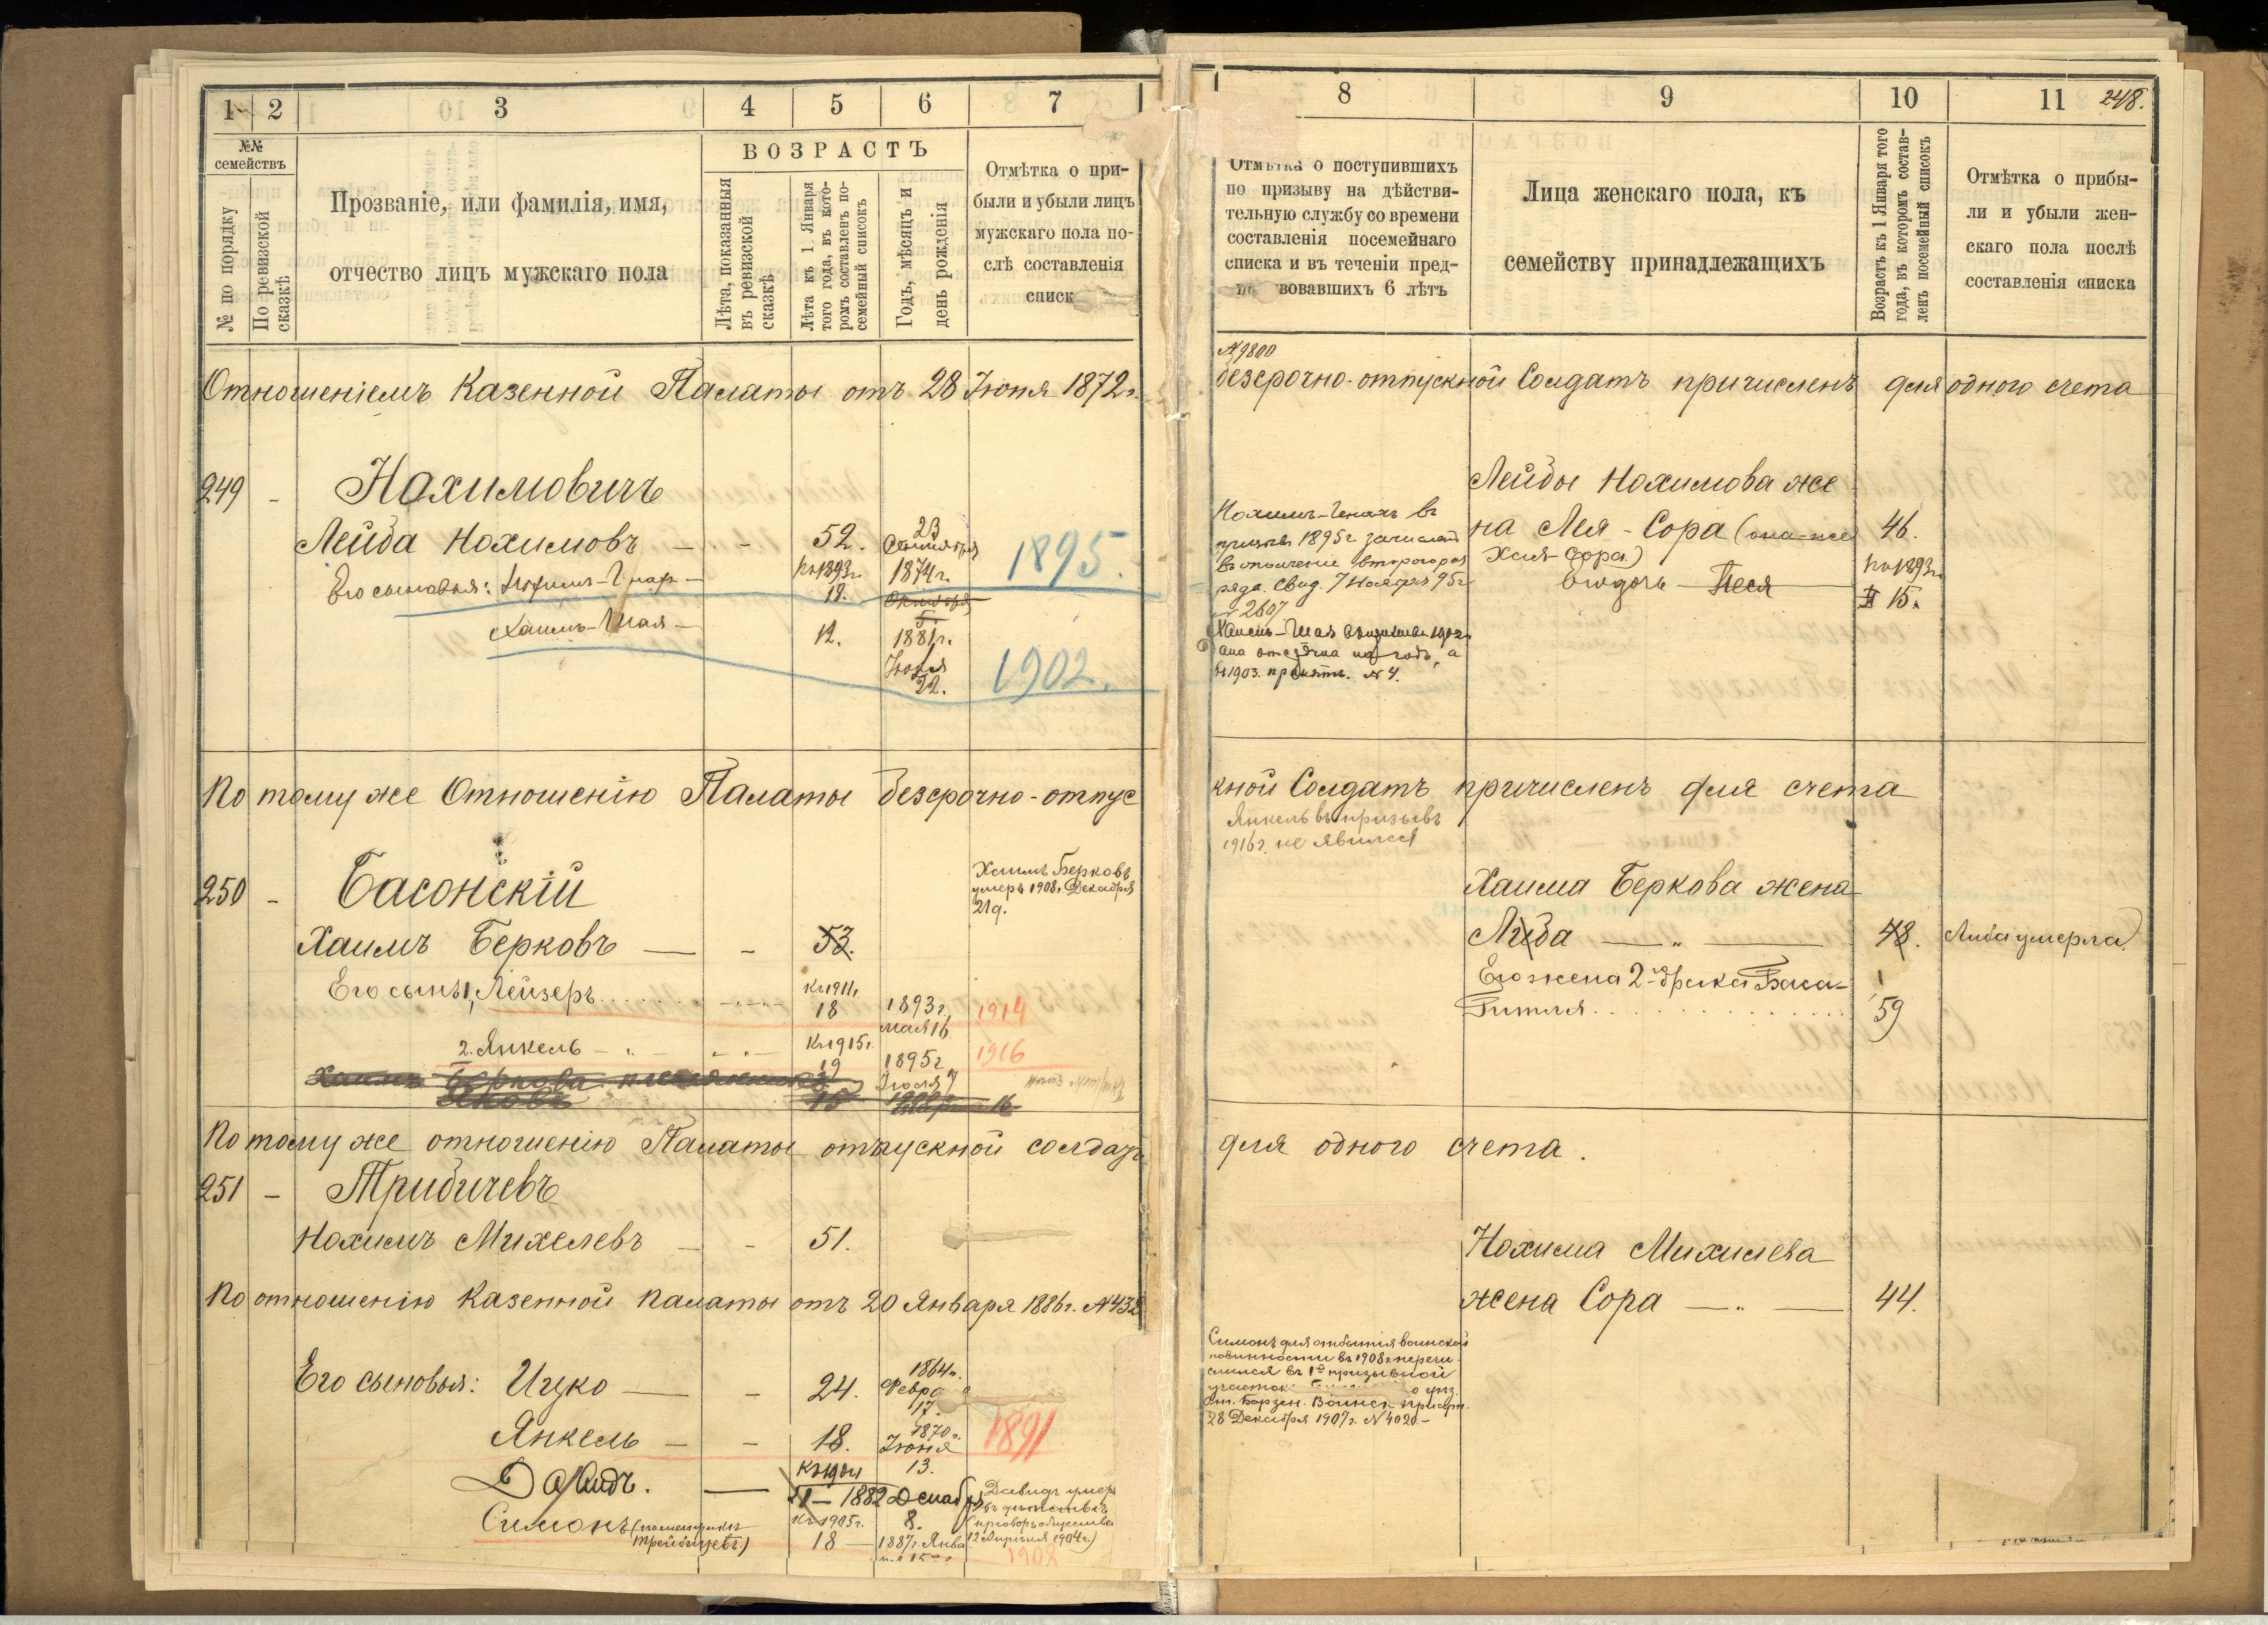 1 2 3 4 5 6 7
№№ семействъ
№ по порядку
По ревизской сказкѣ
Прозваніе, или фамилія, имя,
отчество лицъ мужскаго пола
ВОЗРАСТЪ
Лѣта, показанныя въ ревизской сказкѣ
Лѣта къ 1 Января того года, въ котором составленъ посемейный списокъ
Годъ, мѣсяцъ и день рожденія
Отмѣтка о при-
были и убыли лицъ
мужскаго пола по-
слѣ составленія
списк
Отношеніемъ Казенной Палаты отъ 28 Іюня 1872 г.
249 - Нахимовичъ
Лейба Нохимовъ — - 52. 23 Сентября
Его сыновья: Нохимъ- — Къ 1893 г. 19. 1874 г. 1895.
Октября 5
Хаимъ-Шая — 12. 1881 г. Іюня 22. 1902.
По тому же Отношенію Палаты безсрочно-отпус
250 - Басонскій
Хаимъ Берковъ
умеръ 1908 г. Декабря
21 д.
Хаимъ Берковъ — - 53.
Его сынъ 1, Лейзеръ Къ 1911 г. 18 1893 г. мая 16 1914
2. Янкель — Къ 1915 г. 19 1895 г. Іюля 7 1916
Хаимъ Беркова
Яковъ 16
По тому же отношенію Палаты отпускной солдатъ
251 - Трибичевъ
Нохимъ Михелевъ — - 51.
По отношенію Казенной Палаты отъ 20 Января 1886 г. № 432
Его сыновья: Ицко — - 24. 1864 г. Февра 17.
Янкель — - 18. 1870 г. Іюня 13. 1891
Давидъ. — 21 — 1882 Декабр 8.
Давидъ умер
въ дѣтствѣ
(приговоръ общества
12 Апрѣля 1904 г.)
Симонъ Къ 1905 г. 18 — 1887 г. Янва 15 1908
8 9 10 11 248.
Отмѣтка о поступившихъ
по призыву на дѣйстви-
тельную службу со времени
составленія посемейнаго
списка и въ теченіи пред-
вовавшихъ 6 лѣтъ
Лица женскаго пола, къ
семейству принадлежащихъ
Возрастъ къ 1 Января того года, въ которомъ состав-ленъ посемейный списокъ
Отмѣтка о прибы-
ли и убыли жен-
скаго пола послѣ
составленія списка
№ 9800
безсрочно-отпускной Солдатъ причисленъ для одного счета
Лейбы Нохимова же
на Лея-Сора (она-же 46.
Хая-Сора)
дочь — Песя Къ 1893 г. 15.
въ
призывъ 1895 г. зачисленъ
въ ополченіе второго раз
ряда. Свид. 7 Ноября 95 г.
№ 2607
Хаимъ-Шая 1902 г.
отсрочка на годъ, а
въ 1903. принятъ. № 4.
кной Солдатъ причисленъ для счета
Янкель въ призывъ
1916 г. не явился
Хаима Беркова жена
Либа — „ — 48. Либа умерла
Его жена 2-го брака Баса-
Гитля 59
для одного счета.
Нохима Михилева
жена Сора — „ — 44.
Симонъ для отбытія воинской
повинности въ 1908 г. перечи
слился въ 1й призывной
участок
Воинск. присут.
28 Декабря 1907 г. № 4020.-